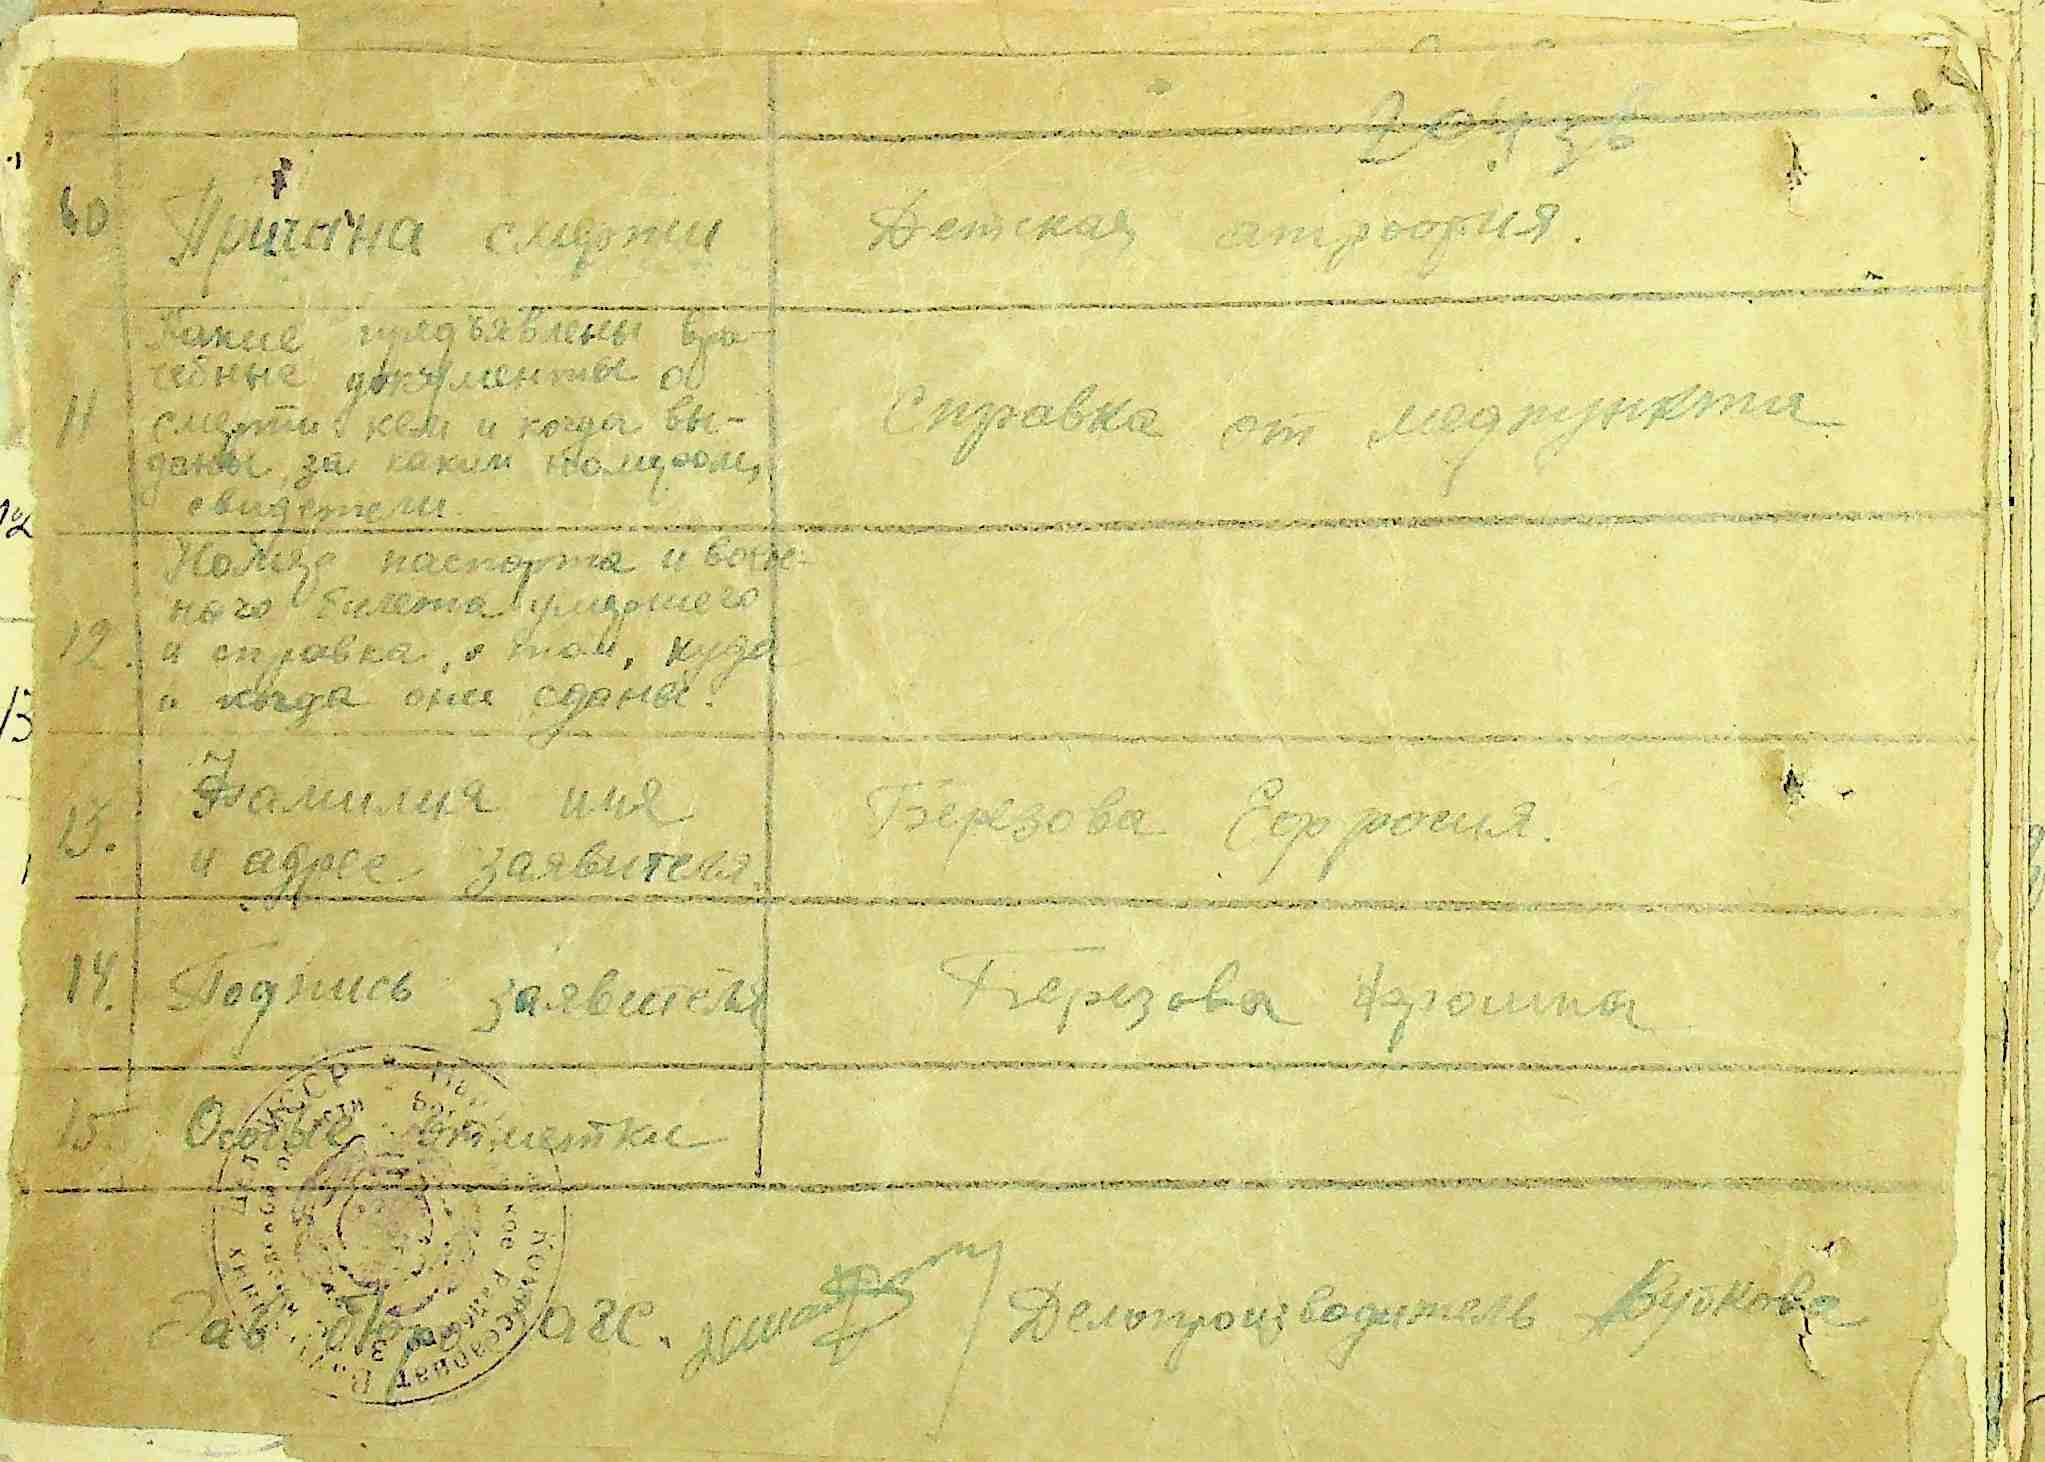 10 Причина смерти Детская атрофия.
Какие предъявлены вра-
чебные документы об
11 смерти кем и когда вы-
даны, за каким номером,
свидетели.
Справка от медпункта
Номер паспорта и воен-
ного билета умершего
12. и справка, о том, куда
и когда они сданы.
13. Фамилия имя
и адрес заявителя.
Березова Ефросия.
14. Подпись заявителя Березова
15. Особые отметки
Зав бюро загс. Делопроизводитель